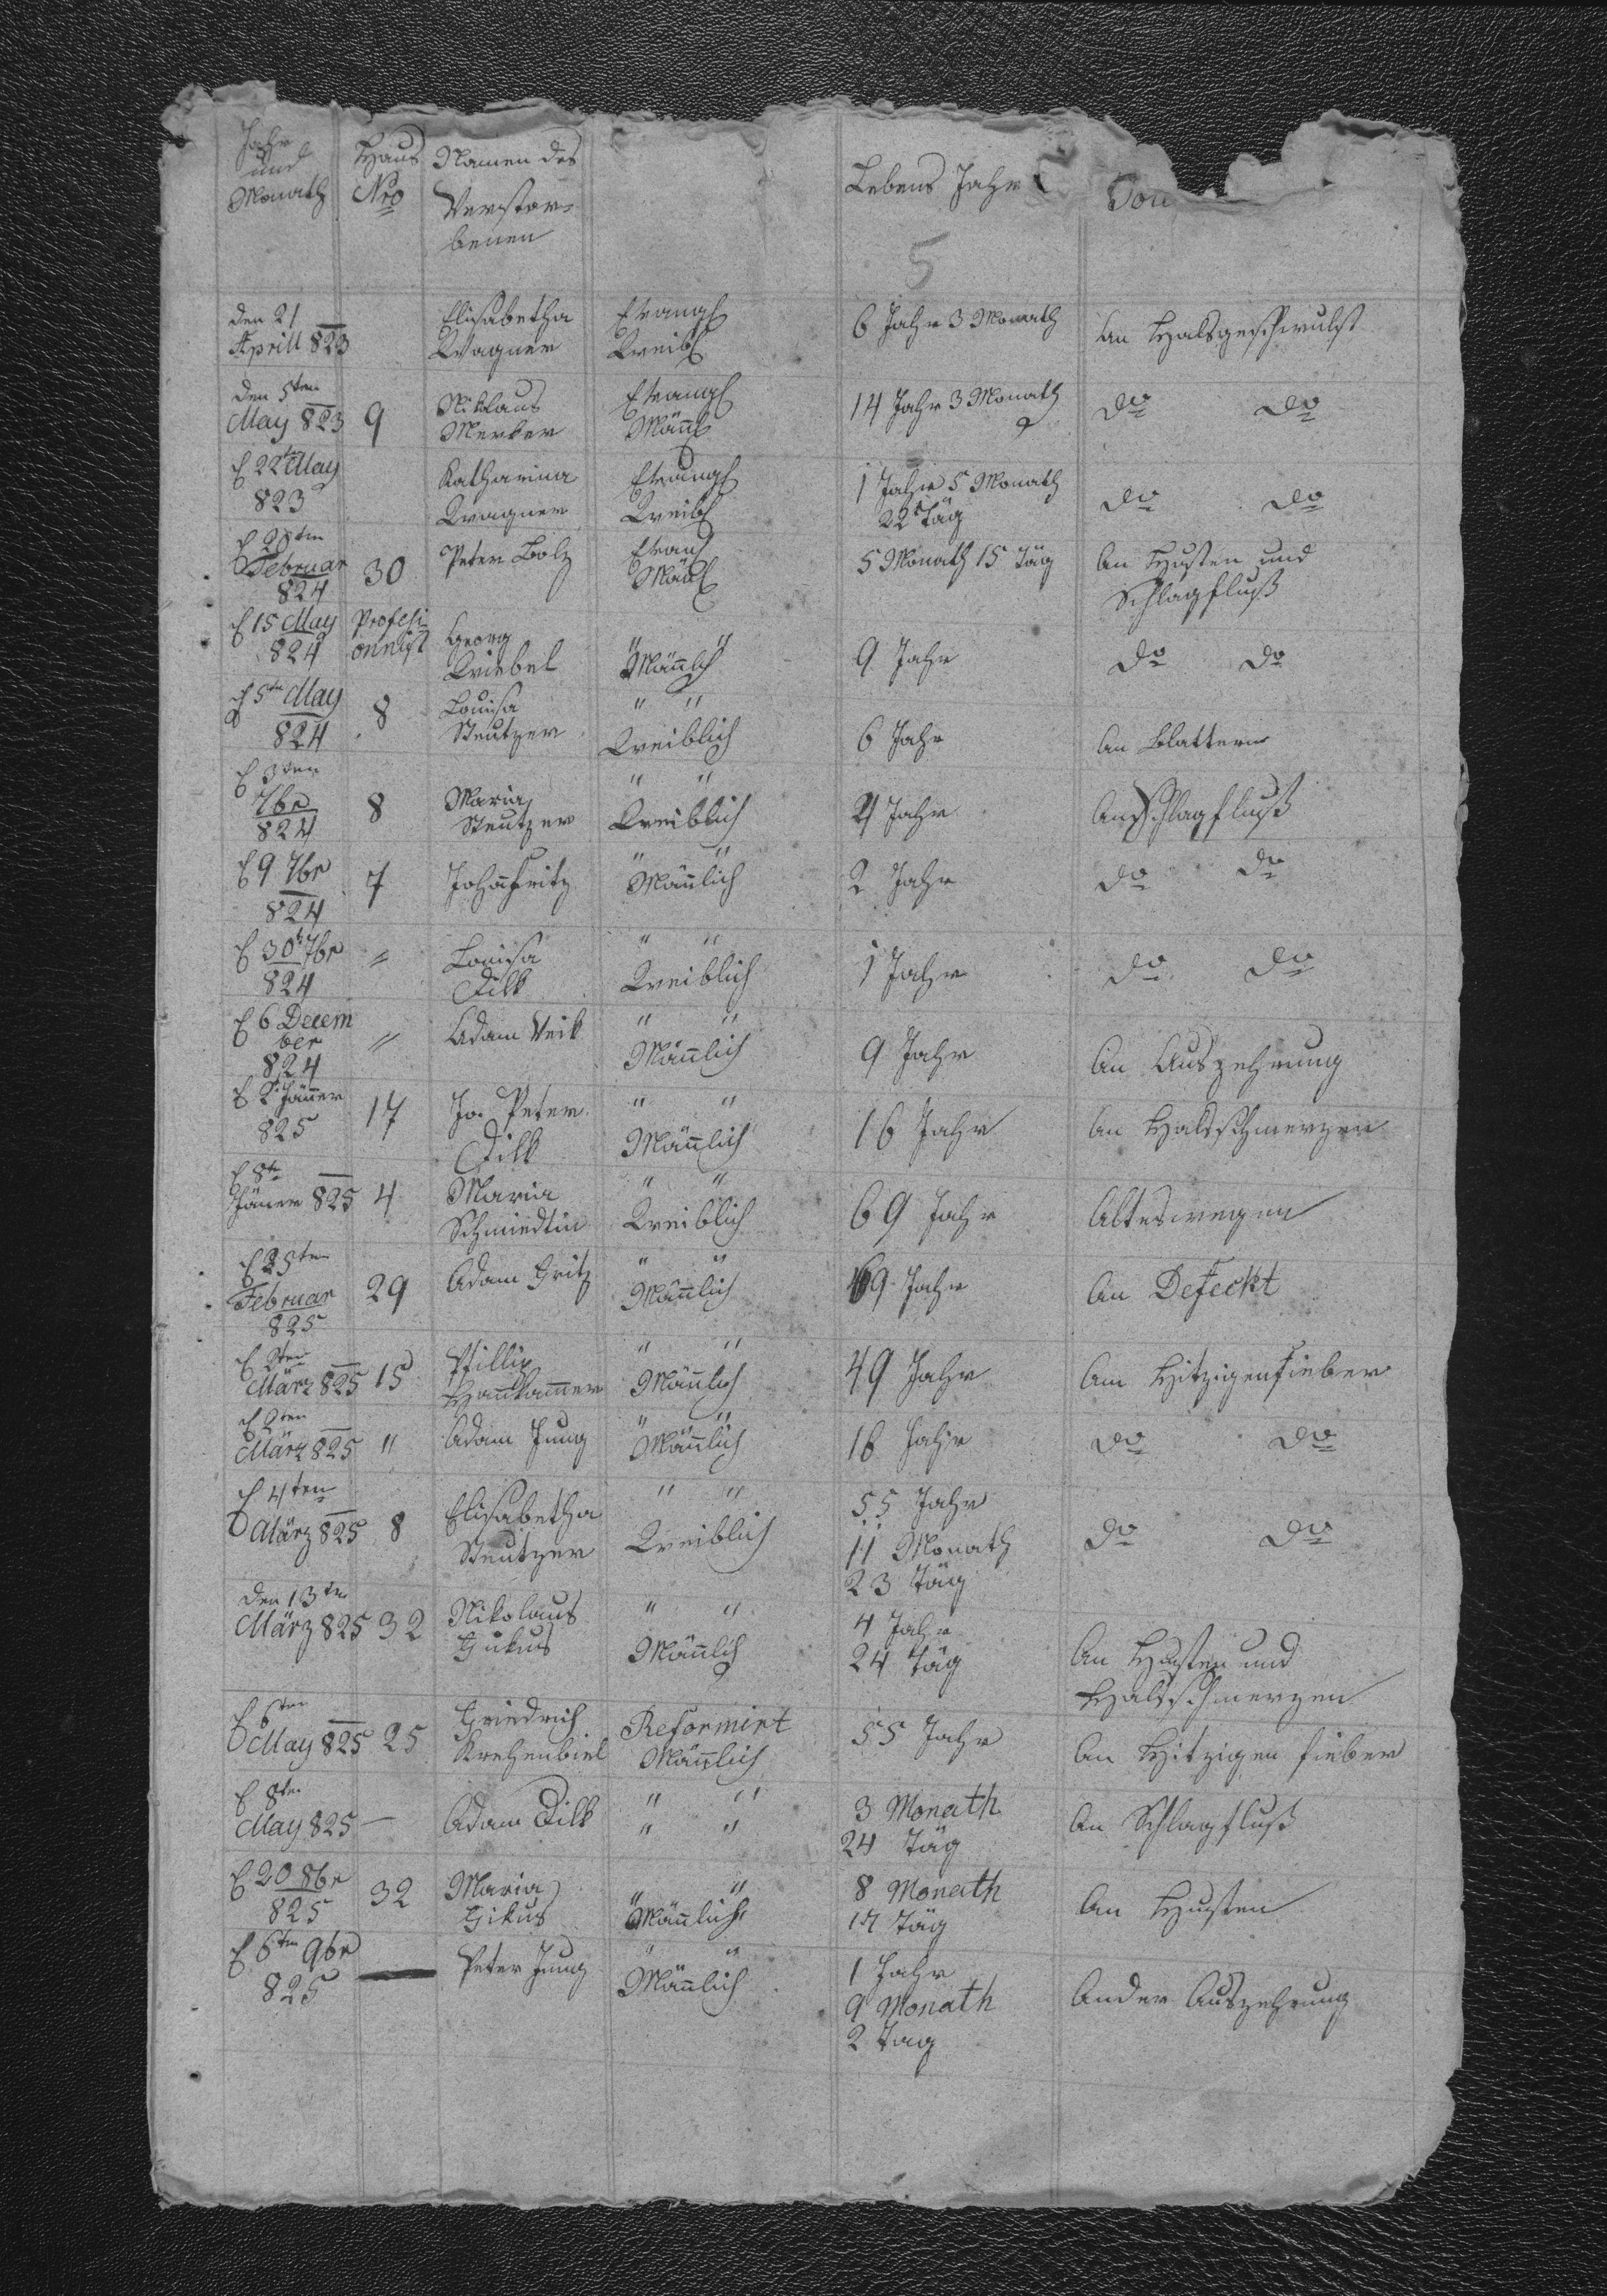 Jahr
und
Monath
Haus
Nro
Namen des
Verstor-
benen
Lebens Jahr
5
den 21
Aprill 823
Elisabetha
Wagner
Evangl
Weibl
6 Jahr 3 Monath
An Halsgeschwulst
den 5ten
May 823
9
Nikolaus
Merker
Evangl
Mäñl
14 Jahr 3 Monath
do do
d 22t May
823
Katharina
Wagner
Evangl
Weibl
1 Jahr 5 Monath
22 Täg
do do
d 20ten
Februar
824
30
Peter Bolz
Evang
Mäñl
5 Monath 15 Täg
An Husten und
Schlagfluß
d 15 May
824
Profesi-
onnist
Georg
Wiebel
" "
Mäñlch
9 Jahr
do do
d 5ten May
824
8
Louisa
Steutzer
" "
Weiblich
6 Jahr
An Blattern
d 3ten
7br
824
8
Maria
Steutzer
" "
Weiblich
4 Jahr
An Schlagfluß
d 9 7br
824
7
Johañ Fritz
" "
Mäñlich
2 Jahr
do do
d 30t 7br
824
"
Louisa
Dilk
" "
Weiblich
1 Jahr
do do
d 6 Decem
ber
824
"
Adam Veik
" "
Mäñlich
9 Jahr
An Auszehrung
d 2t Jäner
825
17
Jo. Peter
Dilk
" "
Mäñlich
16 Jahr
An Halsschmerzen
d 8te
Jäner 825
4
Maria
Schmiedtin
" "
Weiblich
69 Jahr
Alteswegen
d 25ten
Februar
825
29
Adam Fritz
" "
Mäñlich
69 Jahr
An Defeckt
d 2ten
März 825
15
Phillip
" "
Mäñlich
49 Jahr
Am Hitzigenfieber
d 2ten
März 825
"
Adam Jung
" "
Mäñlich
16 Jahr
do do
d 4ten
März 825
8
Elisabetha
Steutzer
" "
Weiblich
55 Jahr
11 Monath
23 Täg
do do
den 13ten
März 825
32
Nikolaus
Gukus
" "
Mäñlich
4 Jahr
24 Täg
An Husten und
Halsschmerzen
d 6ten
May 825
25
Friedrich
Krehenbiel
Reformirt
Mäñlich
55 Jahr
An Hitzigen fieber
d 8ten
May 825
—
Adam Dilk
" "
" "
3 Monath
24 Täg
An Schlagfluß
d 20 8br
825
32
Maria
Gikus
" "
Mäñlich
8 Monath
17 Täg
An Husten
d 6ten 9br
825
—
Peter Jung
" "
Mäñlich
1 Jahr
9 Monath
2 Tag
An der Auszehrung